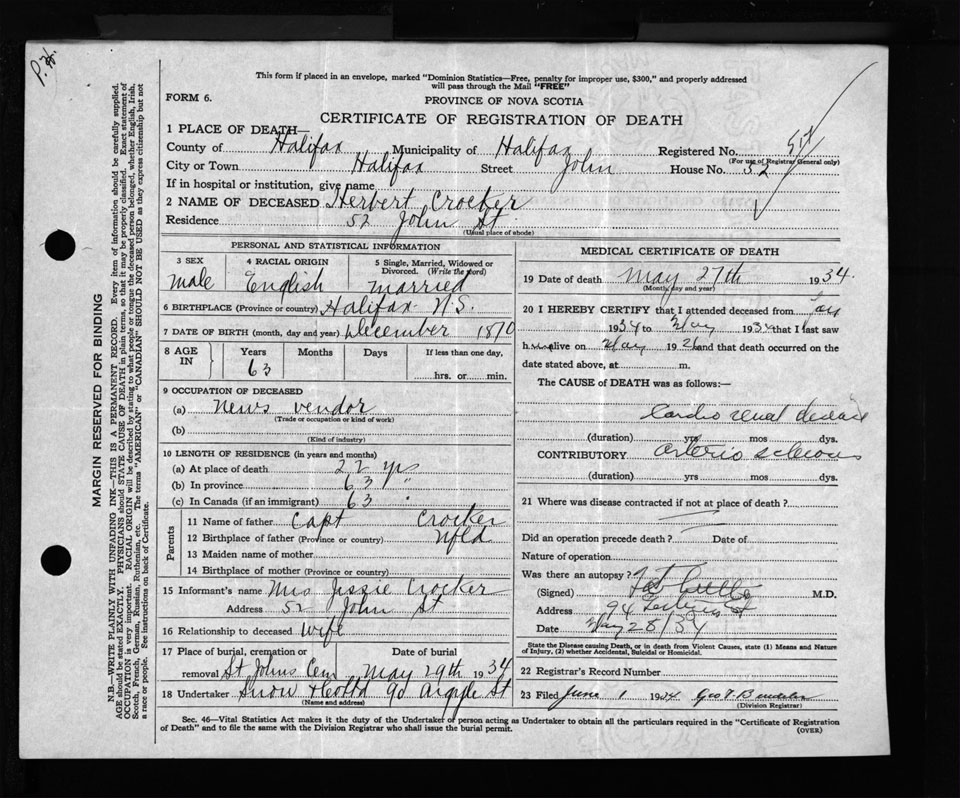 P.H.
This form if placed in an envelope, marked "Dominion Statistics—Free, penalty for improper use, $300," and properly addressed
will pass through the Mail "FREE"
FORM 6.
PROVINCE OF NOVA SCOTIA
CERTIFICATE OF REGISTRATION OF DEATH
1 PLACE OF DEATH—
County of Halifax Municipality of Halifax Registered No.
(For use of Registrar General only)
City or Town Halifax Street John House No. 52
If in hospital or institution, give name
2 NAME OF DECEASED Herbert Crocker
Residence 52 John St.
(Usual place of abode)
PERSONAL AND STATISTICAL INFORMATION
3 SEX male
4 RACIAL ORIGIN English
5 Single, Married, Widowed or Divorced. (Write the word) married
6 BIRTHPLACE (Province or country) Halifax N.S.
7 DATE OF BIRTH (month, day and year) December 1870
8 AGE IN Years Months Days If less than one day,
63 hrs. or min.
9 OCCUPATION OF DECEASED
(a) News vendor
(Trade or occupation or kind of work)
(b)
(Kind of industry)
10 LENGTH OF RESIDENCE (in years and months)
(a) At place of death 22 yrs
(b) In province 63 "
(c) In Canada (if an immigrant) 63 "
Parents
11 Name of father Capt Crocker
12 Birthplace of father (Province or country) Nfld
13 Maiden name of mother
14 Birthplace of mother (Province or country)
15 Informant's name Mrs Jessie Crocker
Address 52 John St
16 Relationship to deceased wife
17 Place of burial, cremation or removal Date of burial
St Johns Cem May 29th 1934
18 Undertaker Snow & Co Ltd 90 Argyle St
(Name and address)
MEDICAL CERTIFICATE OF DEATH
19 Date of death May 27th 1934
(Month, day and year)
20 I HEREBY CERTIFY that I attended deceased from Jan
1934 to May 1934 that I last saw
him alive on May 26 and that death occurred on the
date stated above, at m.
The CAUSE of DEATH was as follows:—
Cardio renal disease
(duration) yrs mos dys.
CONTRIBUTORY arterio sclerosis
(duration) yrs mos dys.
21 Where was disease contracted if not at place of death?
Did an operation precede death? Date of
Nature of operation
Was there an autopsy?
(Signed) M.D.
Address 94
Date May 28/34
State the Disease causing Death, or in death from Violent Causes, state (1) Means and Nature of Injury, (2) whether Accidental, Suicidal or Homicidal.
22 Registrar's Record Number
23 Filed June 1 1934 Geo.
(Division Registrar)
Sec. 46—Vital Statistics Act makes it the duty of the Undertaker or person acting as Undertaker to obtain all the particulars required in the "Certificate of Registration
of Death" and to file the same with the Division Registrar who shall issue the burial permit.
(OVER)
MARGIN RESERVED FOR BINDING
N.B.—WRITE PLAINLY WITH UNFADING INK—THIS IS A PERMANENT RECORD. Every item of information should be carefully supplied.
AGE should be stated EXACTLY. PHYSICIANS should STATE CAUSE OF DEATH in plain terms, so that it may be properly classified. Exact statement of
OCCUPATION is very important. RACIAL ORIGIN will be described by stating to what people or tongue the deceased person belonged, whether English, Irish,
Scotch, French, German, Russian, Ruthenian, etc. The terms "AMERICAN" or "CANADIAN" SHOULD NOT BE USED as they express citizenship but not
a race or people. See instructions on back of Certificate.